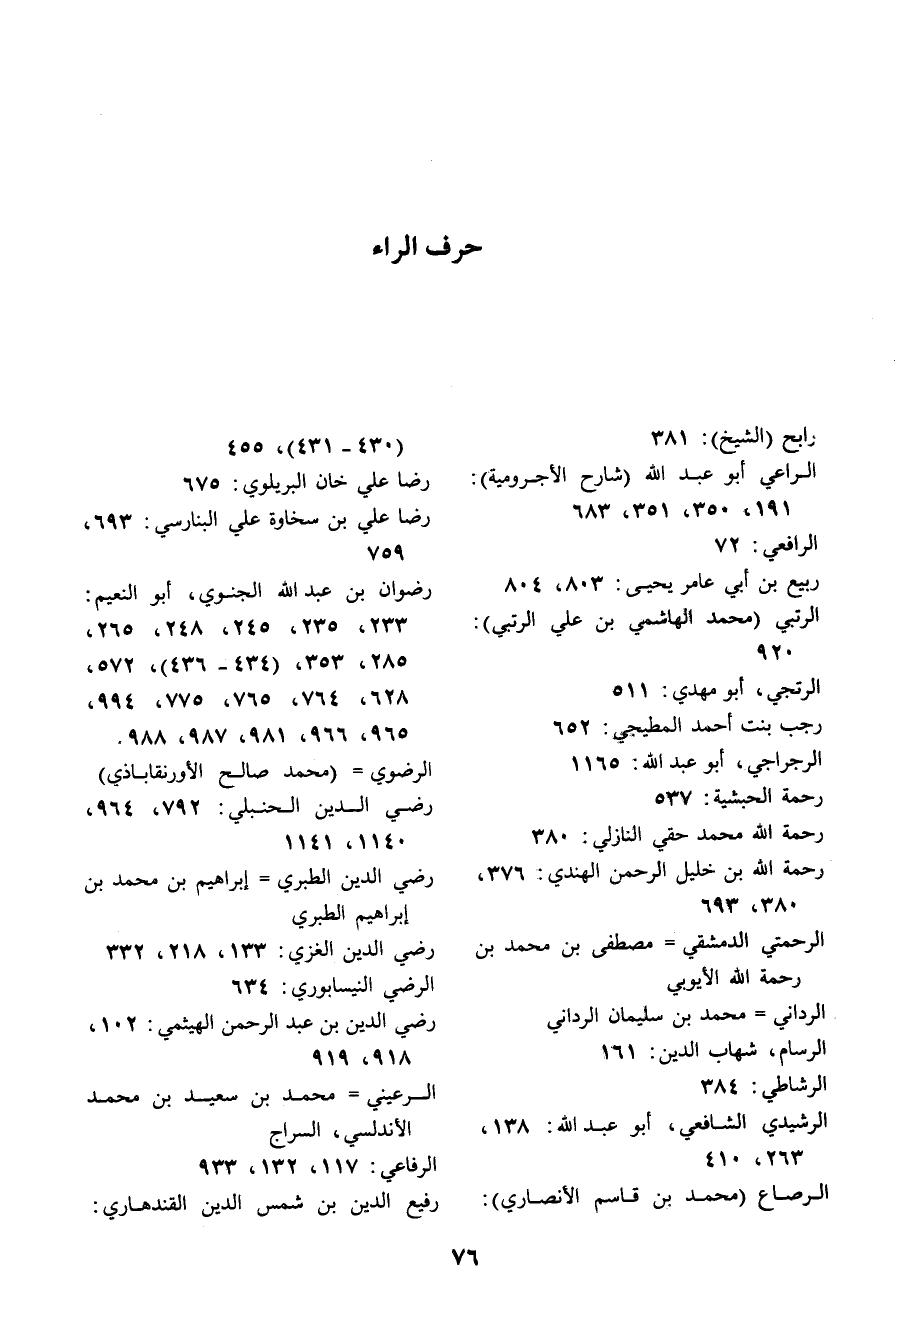 حرف الراء
رابح (الشيخ): ٣٨١
الراعي أبو عبد الله (شارح الأجرومية):
١٩١، ٣٥٠، ٣٥١، ٦٨٣
الرافعي: ٧٢
ربيع بن أبي عامر يحيى: ٨٠٣، ٨٠٤
الرتبي (محمد الهاشمي بن علي الرتبي):
٩٢٠
الرتجي، أبو مهدي: ٥١١
رجب بنت أحمد المطيجي: ٦٥٢
الرجراجي، أبو عبد الله: ١١٦٥
رحمة الحبشية: ٥٣٧
رحمة الله محمد حقي النازلي: ٣٨٠
رحمة الله بن خليل الرحمن الهندي: ٣٧٦،
٣٨٠، ٦٩٣
الرحمتي الدمشقي = مصطفى بن محمد بن
رحمة الله الأيوبي
الرداني = محمد بن سليمان الرداني
الرسام، شهاب الدين: ١٦١
الرشاطي: ٣٨٤
الرشيدي الشافعي، أبو عبد الله: ١٣٨،
٢٦٣، ٤١٠
الرصاع (محمد بن قاسم الأنصاري):
(٤٣٠ - ٤٣١)، ٤٥٥
رضا علي خان البريلوي: ٦٧٥
رضا علي بن سخاوة علي البنارسي: ٦٩٣،
٧٥٩
رضوان بن عبد الله الجنوي، أبو النعيم:
٢٣٣، ٢٣٥، ٢٤٥، ٢٤٨، ٢٦٥،
٢٨٥، ٣٥٣، (٤٣٤ - ٤٣٦)، ٥٧٢،
٦٢٨، ٧٦٤، ٧٦٥، ٧٧٥، ٩٩٤،
٩٦٥، ٩٦٦، ٩٨١، ٩٨٧، ٩٨٨.
الرضوي = (محمد صالح الأورنقاباذي)
رضي الدين الحنبلي: ٧٩٢، ٩٦٤،
١١٤٠، ١١٤١
رضي الدين الطبري = إبراهيم بن محمد بن
إبراهيم الطبري
رضي الدين الغزي: ١٣٣، ٢١٨، ٣٣٢
الرضي النيسابوري: ٦٣٤
رضي الدين بن عبد الرحمن الهيثمي: ١٠٢،
٩١٨، ٩١٩
الرعيني = محمد بن سعيد بن محمد
الأندلسي، السراج
الرفاعي: ١١٧، ١٣٢، ٩٣٣
رفيع الدين بن شمس الدين القندهاري:
٧٦